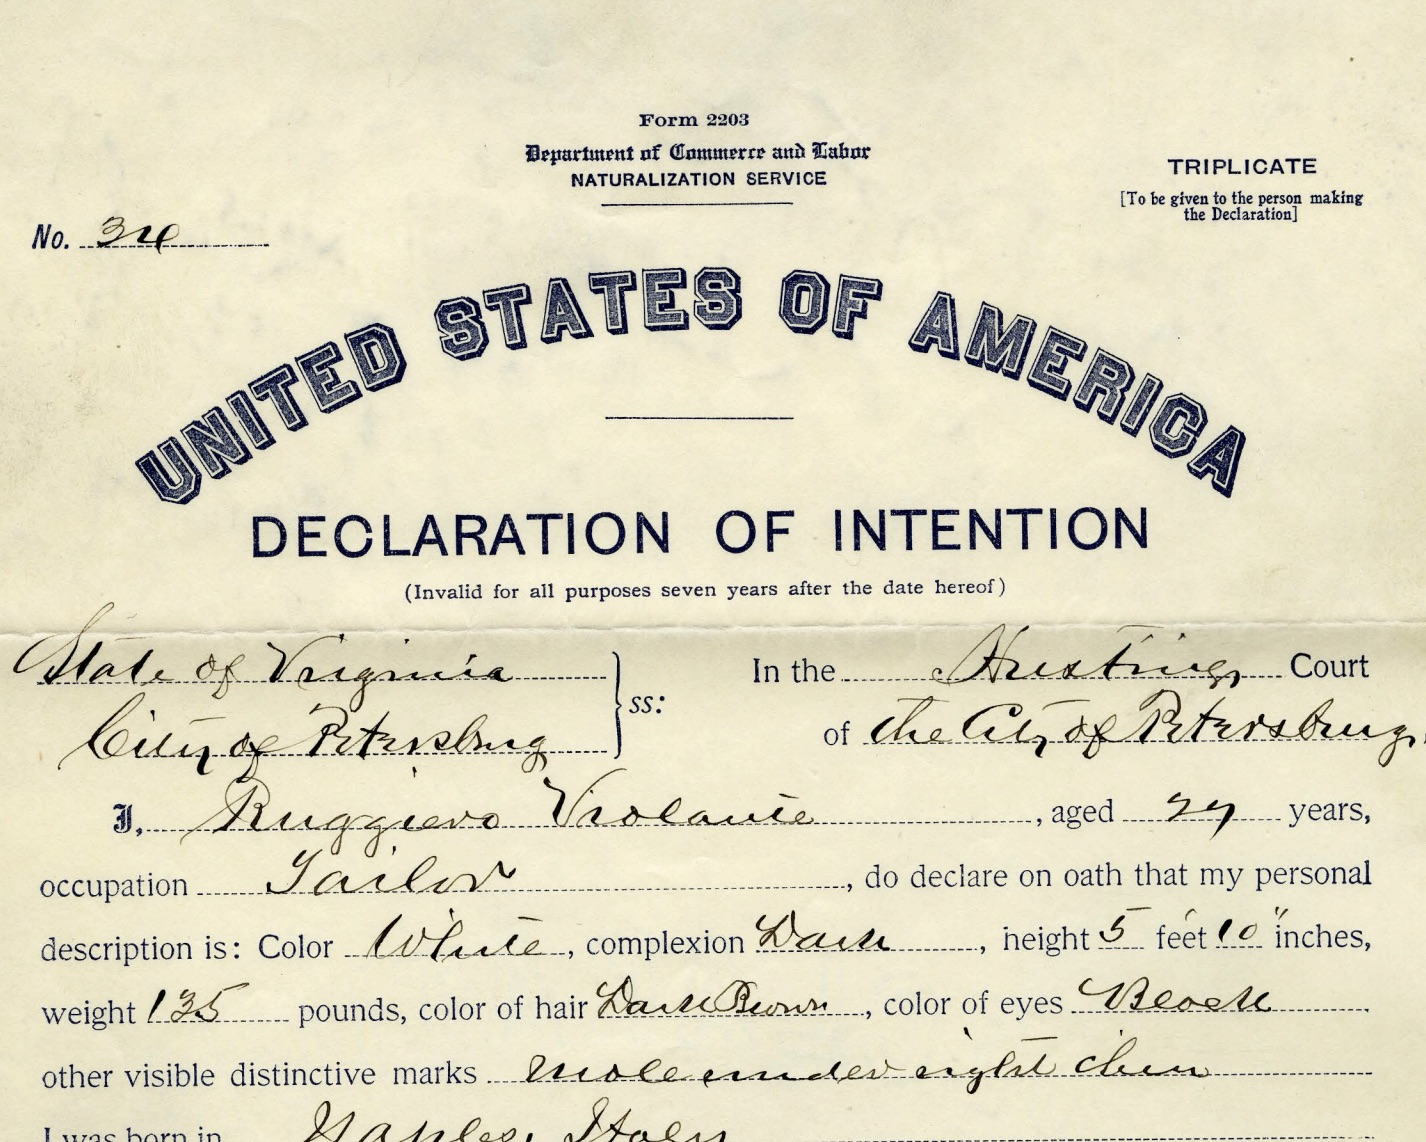 Form 2203
Department of Commerce and Labor
NATURALIZATION SERVICE
TRIPLICATE
[To be given to the person making
the Declaration]
No.
UNITED STATES OF AMERICA
DECLARATION OF INTENTION
(Invalid for all purposes seven years after the date hereof)
State of Virginia
City of Petersburg
ss:
In the Hustings Court
of the City of Petersburg,
I, Ruggiero Violante, aged 27 years,
occupation Tailor, do declare on oath that my personal
description is: Color White, complexion Dark, height 5 feet 10" inches,
weight 135 pounds, color of hair Dark Brown, color of eyes Black
other visible distinctive marks mole under right chin
I was born in Naples, Italy